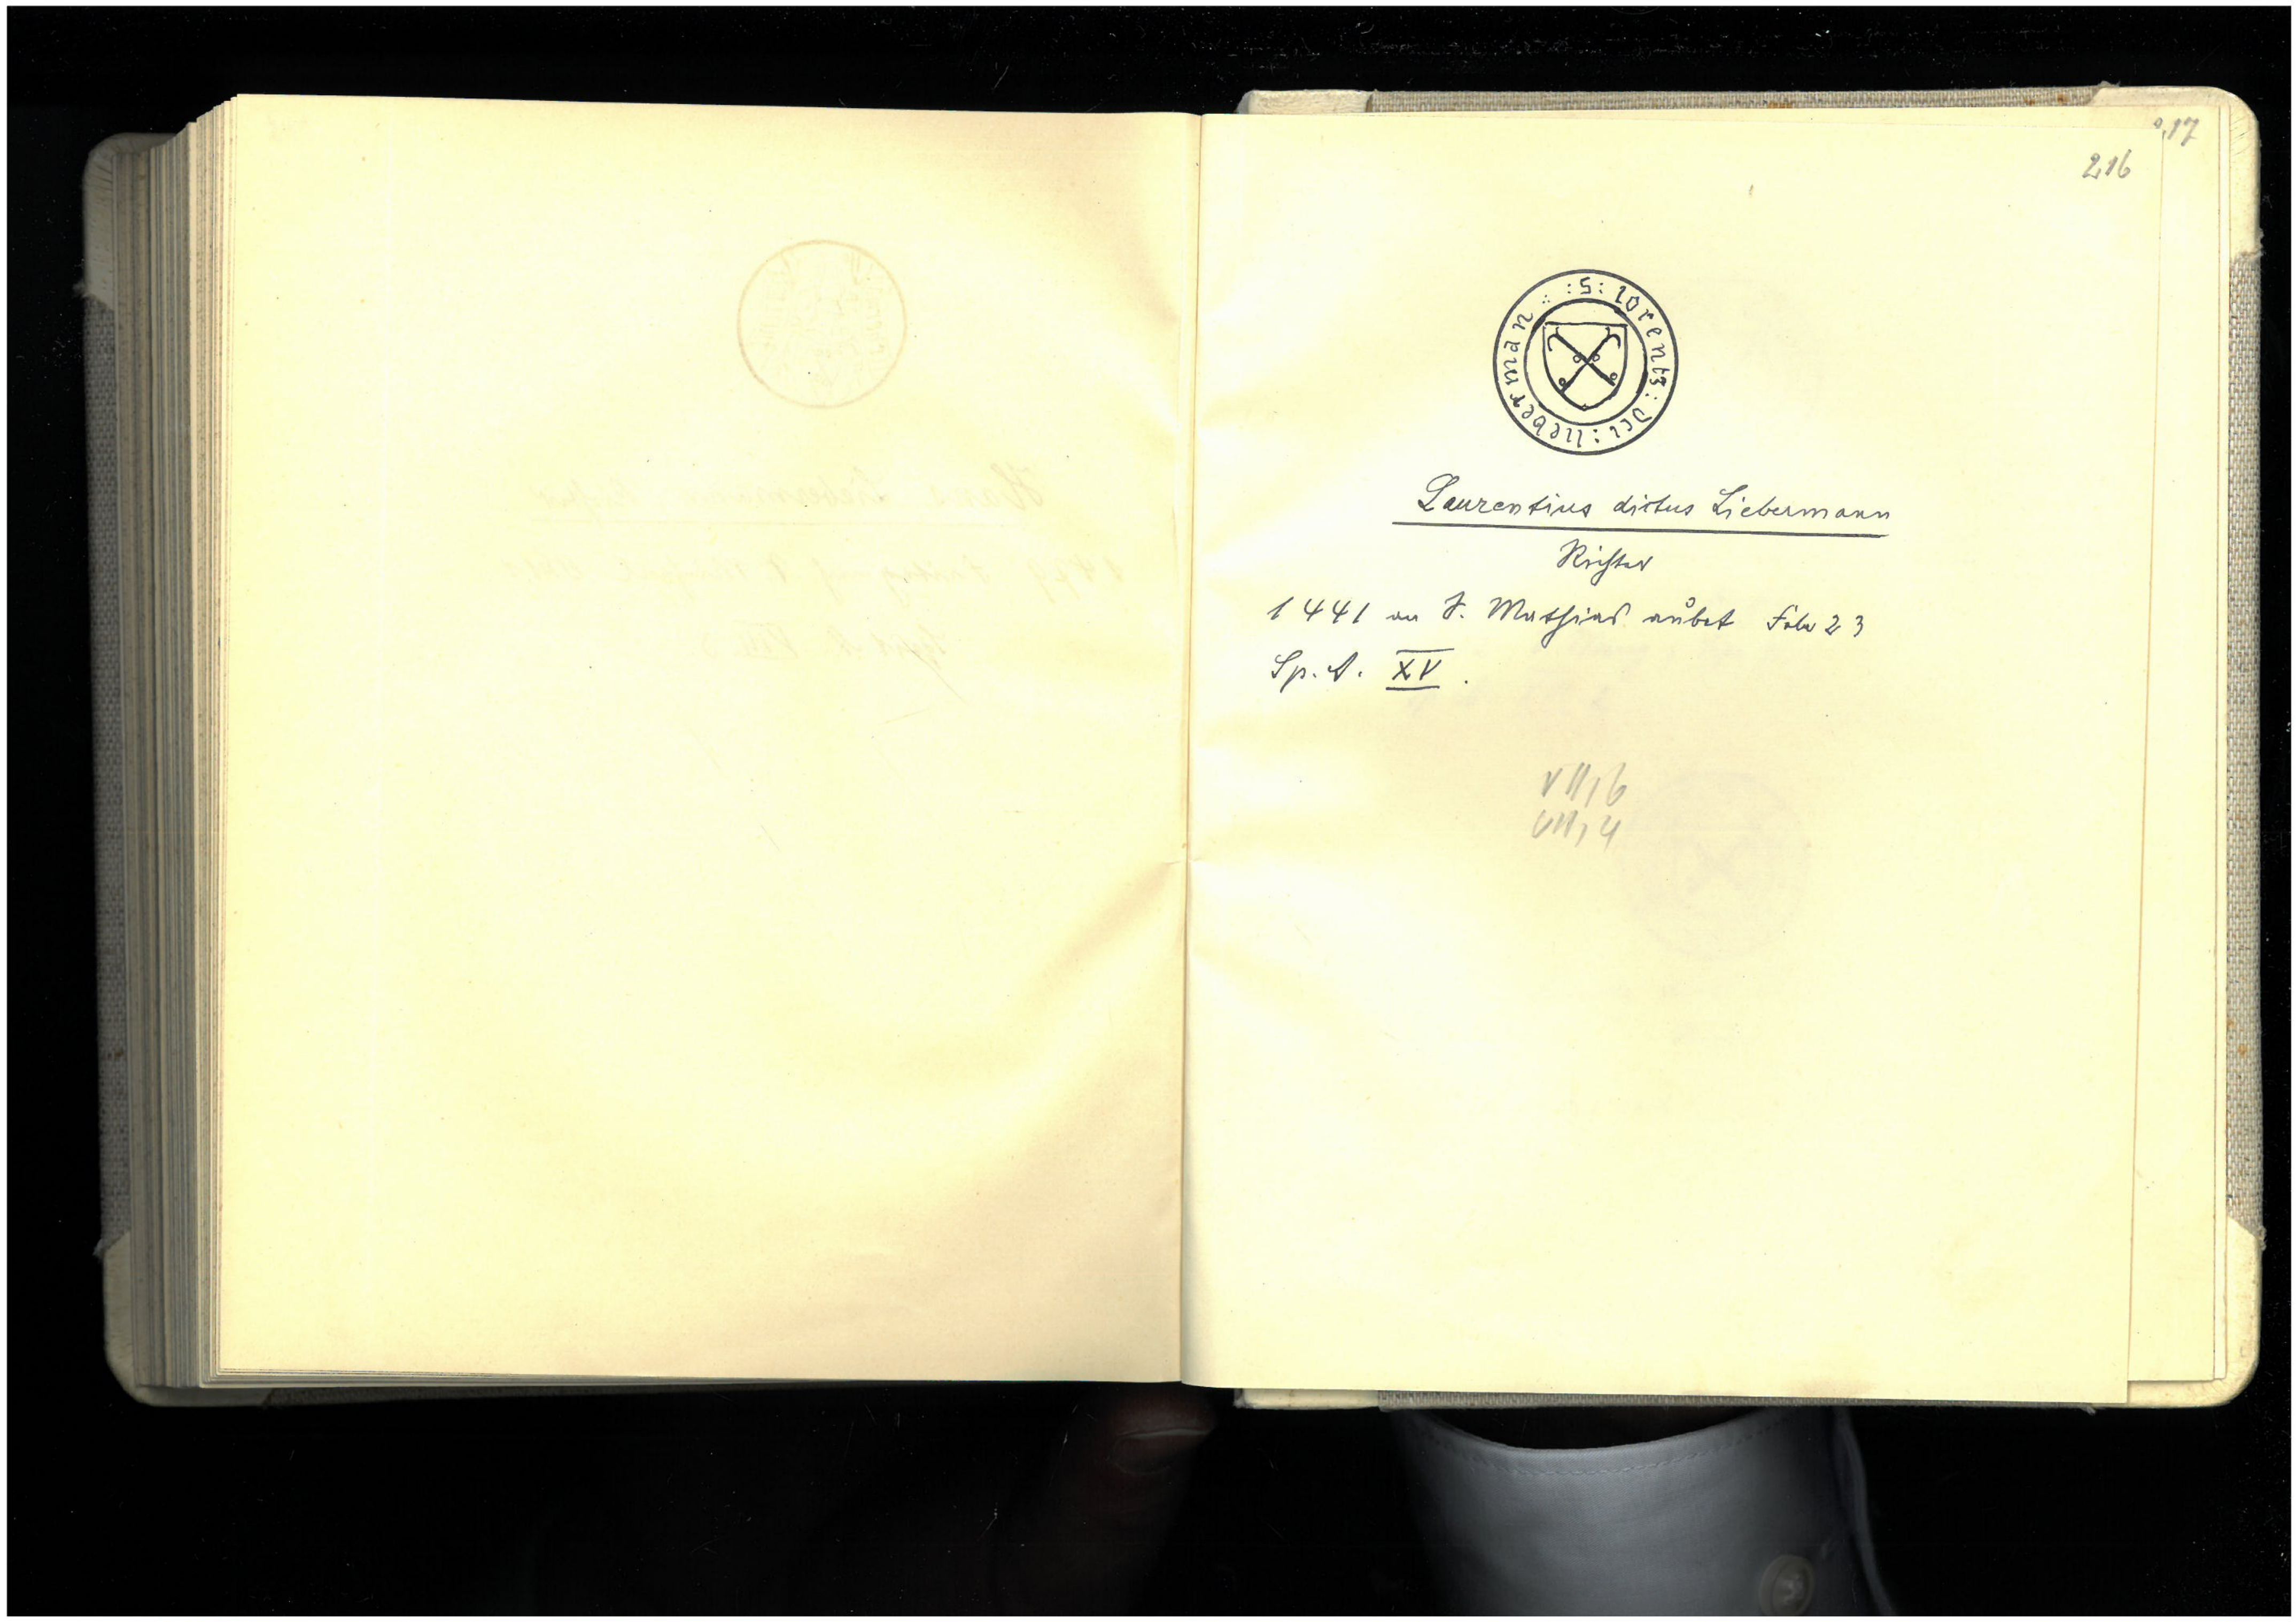 217
216
: S : lorentz : dci : lieberman :
Laurentius dictus Liebermann
Richter
1441 an S. Mathias aubet Febr 23
Sp. A. XV.
VII, 6
VII, 4